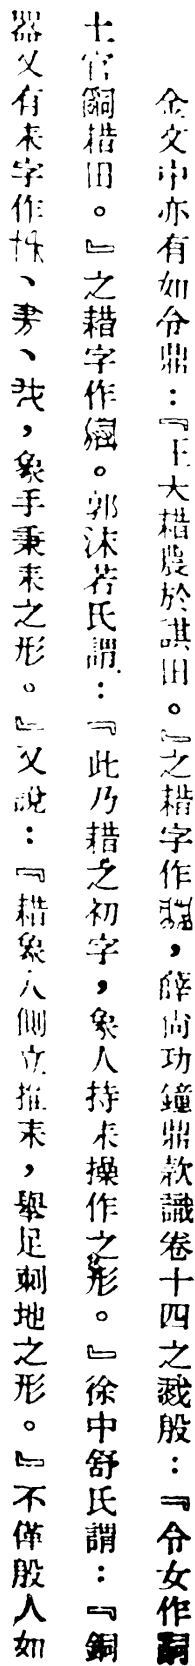 金文中亦有如令鼎：『王大耤農於諆田。』之耤字作，薛尚功鐘鼎款識卷十四之㦰殷：『令女作嗣
土官嗣耤田。』之耤字作。郭沫若氏謂：『此乃耤之初字，象人持耒操作之形。』徐中舒氏謂：『銅
器又有耒字作、、，象手秉耒之形。』又說：『耤象人側立推耒，舉足刺地之形。』不僅殷人如